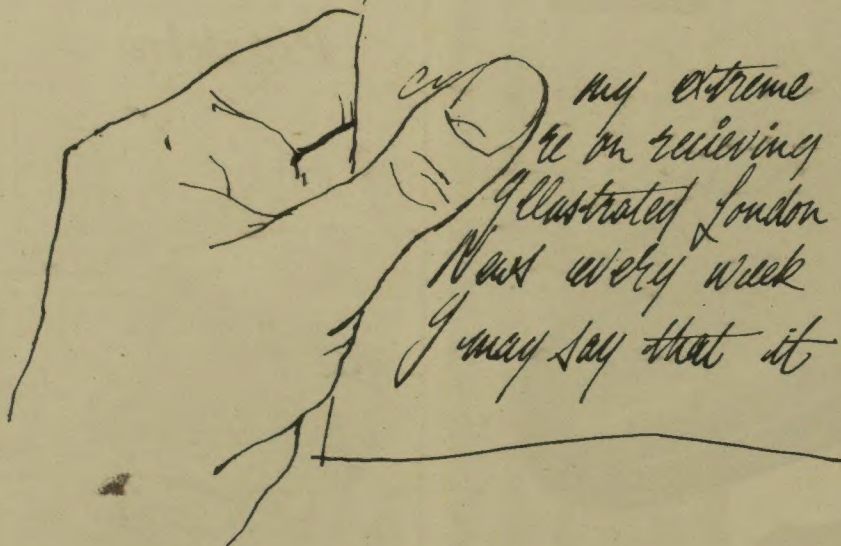 my extreme
re on recieving
Illustrated London
News every week
I may say that it